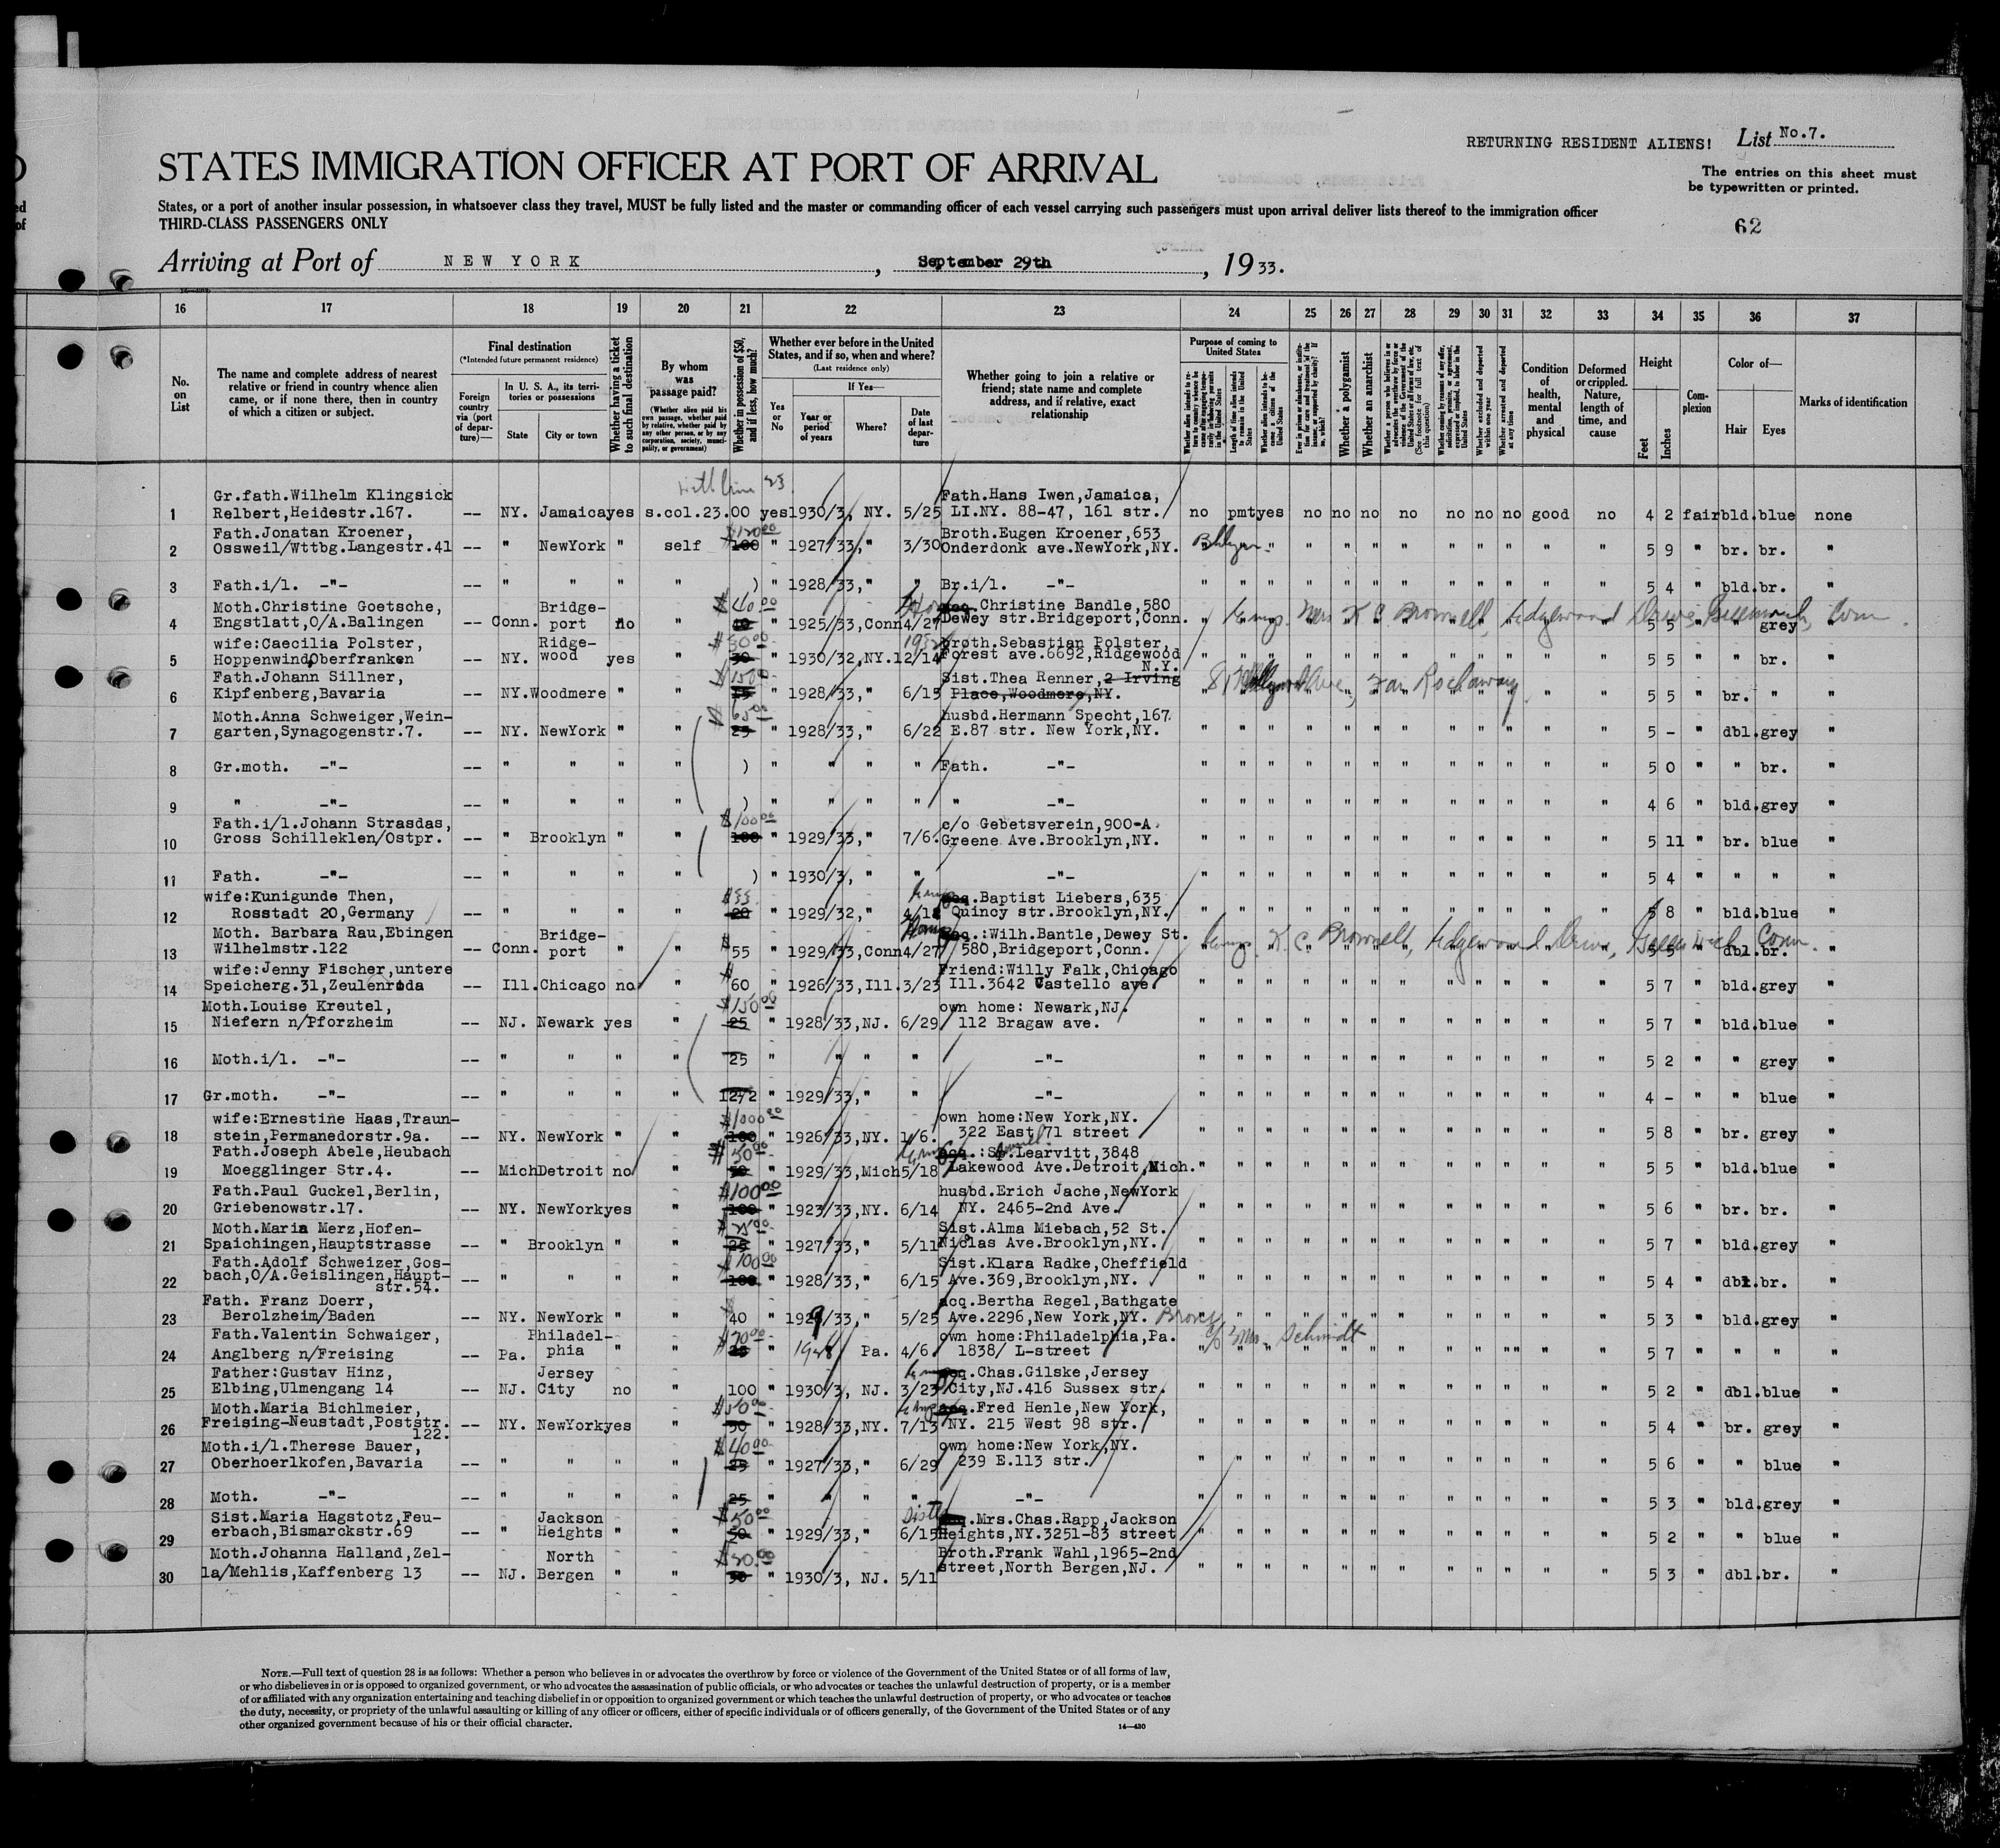 RETURNING RESIDENT ALIENS! List No.7.
STATES IMMIGRATION OFFICER AT PORT OF ARRIVAL
The entries on this sheet must
be typewritten or printed.
States, or a port of another insular possession, in whatsoever class they travel, MUST be fully listed and the master or commanding officer of each vessel carrying such passengers must upon arrival deliver lists thereof to the immigration officer
THIRD-CLASS PASSENGERS ONLY
62
Arriving at Port of NEW YORK, September 29th, 1933.
16 17 18 19 20 21 22 23 24 25 26 27 28 29 30 31 32 33 34 35 36 37
No. on List
The name and complete address of nearest
relative or friend in country whence alien
came, or if none there, then in country
of which a citizen or subject.
Final destination
(*Intended future permanent residence)
Foreign country via (port of departure)—
In U. S. A., its territories or possessions
State City or town
Whether having a ticket to such final destination
By whom was passage paid?
(Whether alien paid his own passage, whether paid by relative, whether paid by any other person, or by any corporation, society, municipality, or government)
Whether in possession of $50, and if less, how much?
Whether ever before in the United
States, and if so, when and where?
(Last residence only)
Yes or No
If Yes—
Year or period of years Where? Date of last departure
Whether going to join a relative or
friend; state name and complete
address, and if relative, exact
relationship
Purpose of coming to United States
Whether a polygamist
Whether an anarchist
Condition of health, mental and physical
Deformed or crippled. Nature, length of time, and cause
Height
Feet Inches
Complexion
Color of—
Hair Eyes
Marks of identification
Gr.fath.Wilhelm Klingsick Fath.Hans Iwen,Jamaica,
1 Relbert,Heidestr.167. -- NY. Jamaica yes s.col.23.00 yes 1930/3, NY. 5/25 LI.NY. 88-47, 161 str. no pmt yes no no no no no no no good no 4 2 fair bld. blue none
Fath.Jonatan Kroener, $120.00 Broth.Eugen Kroener,653
2 Ossweil/Wttbg.Langestr.41 -- " NewYork " self 100 " 1927/33," 3/30 Onderdonk ave.NewYork,NY. " " " " " " " " " " " " 5 9 " br. br. "
3 Fath.i/l. -"- -- " " " " ) " 1928/33," " Br.i/l. -"- " " " " " " " " " " " " 5 4 " bld. br. "
Moth.Christine Goetsche, Bridge- $40.00 acq.Christine Bandle,580
4 Engstlatt,O/A.Balingen -- Conn. port no " 40 " 1925/33,Conn 4/27 Dewey str.Bridgeport,Conn. K C Brownell, Edgewood Drive, Greenwich, Conn. 5 5 " " grey "
wife:Caecilia Polster, Ridge- $30.00 1932 broth.Sebastian Polster,
5 Hoppenwind,Oberfranken -- NY. wood yes " 30 " 1930/32,NY. 12/14 Forest ave.6692,Ridgewood N.Y. " " " " " " " " " " " " 5 5 " " br. "
Fath.Johann Sillner, $15.00 Sist.Thea Renner,2 Irving
6 Kipfenberg,Bavaria -- NY. Woodmere " " 15 " 1928/33, " 6/15 Place,Woodmere,NY. Far Rockaway 5 5 " br. " "
Moth.Anna Schweiger,Wein- $65.00 husbd.Hermann Specht,167
7 garten,Synagogenstr.7. -- NY. NewYork " " 25 " 1928/33," 6/22 E.87 str. New York,NY. " " " " " " " " " " " " 5 - " dbl. grey "
8 Gr.moth. -"- -- " " " " ) " " " " Fath. -"- " " " " " " " " " " " " 5 0 " " br. "
9 " -"- -- " " " " ) " " " " " -"- " " " " " " " " " " " " 4 6 " bld. grey "
Fath.i/l.Johann Strasdas, $100.00 c/o Gebetsverein,900-A
10 Gross Schilleklen/Ostpr. -- " Brooklyn " " 100 " 1929/33," 7/6. Greene Ave.Brooklyn,NY. " " " " " " " " " " " " 5 11 " br. blue "
11 Fath. -"- -- " " " " ) " 1930/3, " " -"- " " " " " " " " " " " " 5 4 " " " "
wife:Kunigunde Then, $33. acq.Baptist Liebers,635
12 Rosstadt 20,Germany -- " " " " 20 " 1929/32," 4/12 Quincy str.Brooklyn,NY. " " " " " " " " " " " " 5 8 " bld. blue "
Moth. Barbara Rau,Ebingen Bridge- $ acq.:Wilh.Bantle,Dewey St.
13 Wilhelmstr.122 -- Conn. port " " 55 " 1929/33,Conn 4/27 580,Bridgeport,Conn. K. C. Brownell, Edgewood Drive, Greenwich Conn. 5 5 " dbl. br. "
wife:Jenny Fischer,untere $ Friend:Willy Falk,Chicago
14 Speicherg.31,Zeulenroda -- Ill. Chicago no " 60 " 1926/33,Ill. 3/23 Ill.3642 Castello ave. " " " " " " " " " " " " 5 7 " bld. grey "
Moth.Louise Kreutel, $150.00 own home: Newark,NJ.
15 Niefern n/Pforzheim -- NJ. Newark yes " 25 " 1928/33,NJ. 6/29 112 Bragaw ave. " " " " " " " " " " " " 5 7 " bld. blue "
16 Moth.i/l. -"- -- " " " " 25 " " " " -"- " " " " " " " " " " " " 5 2 " " grey "
17 Gr.moth. -"- -- " " " " 12½ " 1929/33," " -"- " " " " " " " " " " " " 4 - " " blue "
wife:Ernestine Haas,Traun- $1000.00 own home:New York,NY.
18 stein,Permanedorstr.9a. -- NY. NewYork " " 100 " 1926/33,NY. 1/6. 322 East 71 street " " " " " " " " " " " " 5 8 " br. grey "
Fath.Joseph Abele,Heubach $50.00 Learvitt,3848
19 Moegglinger Str.4. -- Mich Detroit no " 50 " 1929/33,Mich 5/18 Lakewood Ave.Detroit,Mich. " " " " " " " " " " " " 5 5 " bld. blue "
Fath.Paul Guckel,Berlin, $100.00 husbd.Erich Jache,NewYork
20 Griebenowstr.17. -- NY. NewYork yes " 100 " 1923/33,NY. 6/14 NY. 2465-2nd Ave. " " " " " " " " " " " " 5 6 " br. br. "
Moth.Maria Merz,Hofen- $25.00 Sist.Alma Miebach,52 St.
21 Spaichingen,Hauptstrasse -- " Brooklyn " " 25 " 1927/33," 5/11 Niclas Ave.Brooklyn,NY. " " " " " " " " " " " " 5 7 " bld. grey "
Fath.Adolf Schweizer,Gos- $100.00 Sist.Klara Radke,Cheffield
22 bach,O/A.Geislingen,Haupt-str.54. -- " " " " 100 " 1928/33," 6/15 Ave.369,Brooklyn,NY. " " " " " " " " " " " " 5 4 " dbl. br. "
Fath. Franz Doerr, $ acq.Bertha Regel,Bathgate
23 Berolzheim/Baden -- NY. NewYork " " 40 " 1929/33," 5/25 Ave.2296,New York,NY. Bronx " " " " " " " " " " " " 5 3 " bld. grey "
Fath.Valentin Schwaiger, Philadel- $70.00 own home:Philadelphia,Pa. c/o Mrs. Schmidt
24 Anglberg n/Freising -- Pa. phia " " 25 " 1928/ Pa. 4/6. 1838/ L-street " " " " " " " " " " " " 5 7 " " " "
Father:Gustav Hinz, Jersey acq.Chas.Gilske,Jersey
25 Elbing,Ulmengang 14 -- NJ. City no " 100 " 1930/3, NJ. 3/23 City,NJ.416 Sussex str. " " " " " " " " " " " " 5 2 " dbl. blue "
Moth.Maria Bichlmeier, $50.00 acq.Fred Henle,New York,
26 Freising-Neustadt,Poststr. 122. -- NY. NewYork yes " 50 " 1928/33,NY. 7/13 NY. 215 West 98 str. " " " " " " " " " " " " 5 4 " br. grey "
Moth.i/l.Therese Bauer, $40.00 own home:New York,NY.
27 Oberhoerlkofen,Bavaria -- " " " " 25 " 1927/33," 6/29 239 E.113 str. " " " " " " " " " " " " 5 6 " " blue "
28 Moth. -"- -- " " " " 25 " " " " -"- " " " " " " " " " " " " 5 3 " bld. grey "
Sist.Maria Hagstotz,Feu- Jackson $50.00 Mrs.Chas.Rapp,Jackson
29 erbach,Bismarckstr.69 -- " Heights " " 50 " 1929/33," 6/15 Heights,NY.3251-83 street " " " " " " " " " " " " 5 2 " " blue "
Moth.Johanna Halland,Zel- North $30.00 Broth.Frank Wahl,1965-2nd
30 la/Mehlis,Kaffenberg 13 -- NJ. Bergen " " 30 " 1930/3, NJ. 5/11 street,North Bergen,NJ. " " " " " " " " " " " " 5 3 " dbl. br. "
NOTE.—Full text of question 28 is as follows: Whether a person who believes in or advocates the overthrow by force or violence of the Government of the United States or of all forms of law,
or who disbelieves in or is opposed to organized government, or who advocates the assassination of public officials, or who advocates or teaches the unlawful destruction of property, or is a member
of or affiliated with any organization entertaining and teaching disbelief in or opposition to organized government or which teaches the unlawful destruction of property, or who advocates or teaches
the duty, necessity, or propriety of the unlawful assaulting or killing of any officer or officers, either of specific individuals or of officers generally, of the Government of the United States or of any
other organized government because of his or their official character.
14—430